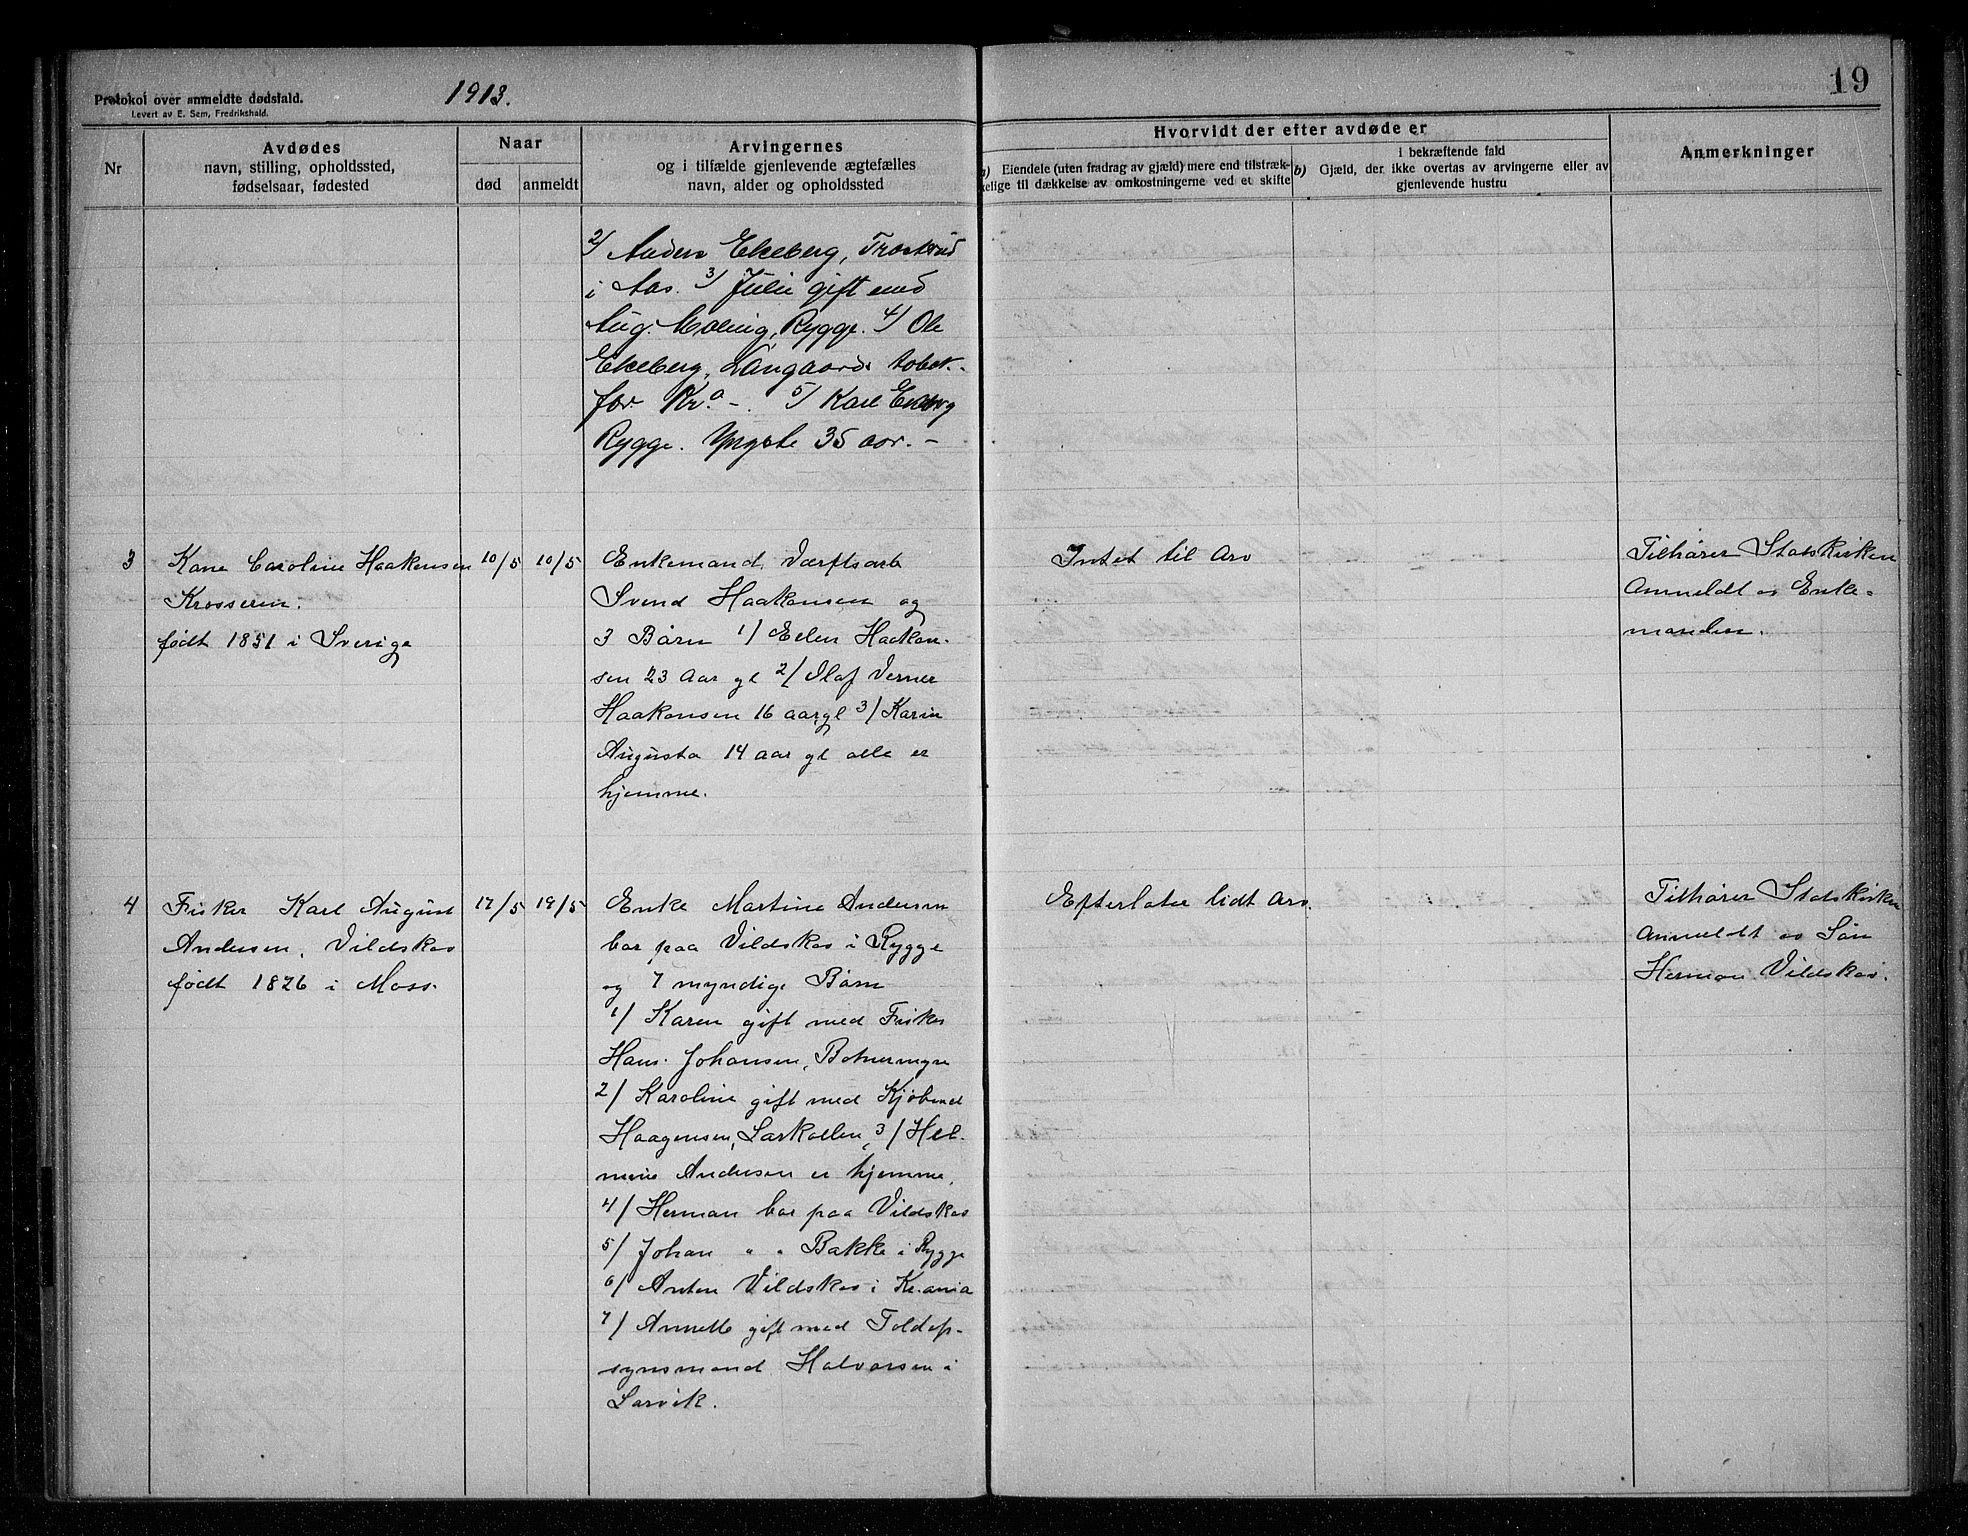 Protokol over anmeldte dødsfald.
Levert av E. Sem, Fredrikshald.
1913.
19
Nr
Avdødes
navn, stilling, opholdssted,
fødselsaar, fødested
Naar
død
anmeldt
Arvingernes
og i tilfælde gjenlevende ægtefælles
navn, alder og opholdssted
Hvorvidt der efter avdøde er
a) Eiendele (uten fradrag av gjæld) mere end tilstræk-
kelige til dækkelse av omkostningerne ved et skifte
b) i bekræftende fald
Gjæld, der ikke overtas av arvingerne eller av
gjenlevende hustru
Anmerkninger
2/ Anders Ekeberg,
i Aas. 3/ Julie gift med
Aug. Rygge. 4/ Ole
Ekeberg, Langaards tobak-
fbr. Kra. –. 5/ Karl Ekeberg
Rygge. Yngste 35 aar. –
3
Kone Caroline Haakensen
Krosseren.
født 1851 i Sverige
10/5
10/5
Enkemand, Værftsarb
Svend Haakensen og
3 Børn 1/ Ellen Haaken-
sen 23 aar gl 2/ Olaf Verner
Haakensen 16 aar gl 3/ Karin
Augusta 14 aar gl alle er
hjemme.
Intet til Arv
Tilhører Statskirken
Anmeldt av Enke-
manden.
4
Fisker Karl August
Andersen, Vildskas
født 1826 i Moss.
17/5
19/5
Enke Martine Andersen
bor paa Vildskas i Rygge
og 7 myndige Børn
1/ Karen gift med Fisker
Hans Johansen, Botnermyr
2/ Karoline gift med Kjøbmd
Haagensen, Larkollen, 3/ Hel-
mine Andersen er hjemme,
4/ Herman bor paa Vildskas
5/ Johan " " Bakke i Rygge
6/ Anton Vildskas i Kr.ania
7/ Annette gift med Toldop-
synsmand Halvorsen i
Larvik.
Efterlater lidt Arv.
Tilhører Statskirken
Anmeldt av Søn
Herman Vildskas.